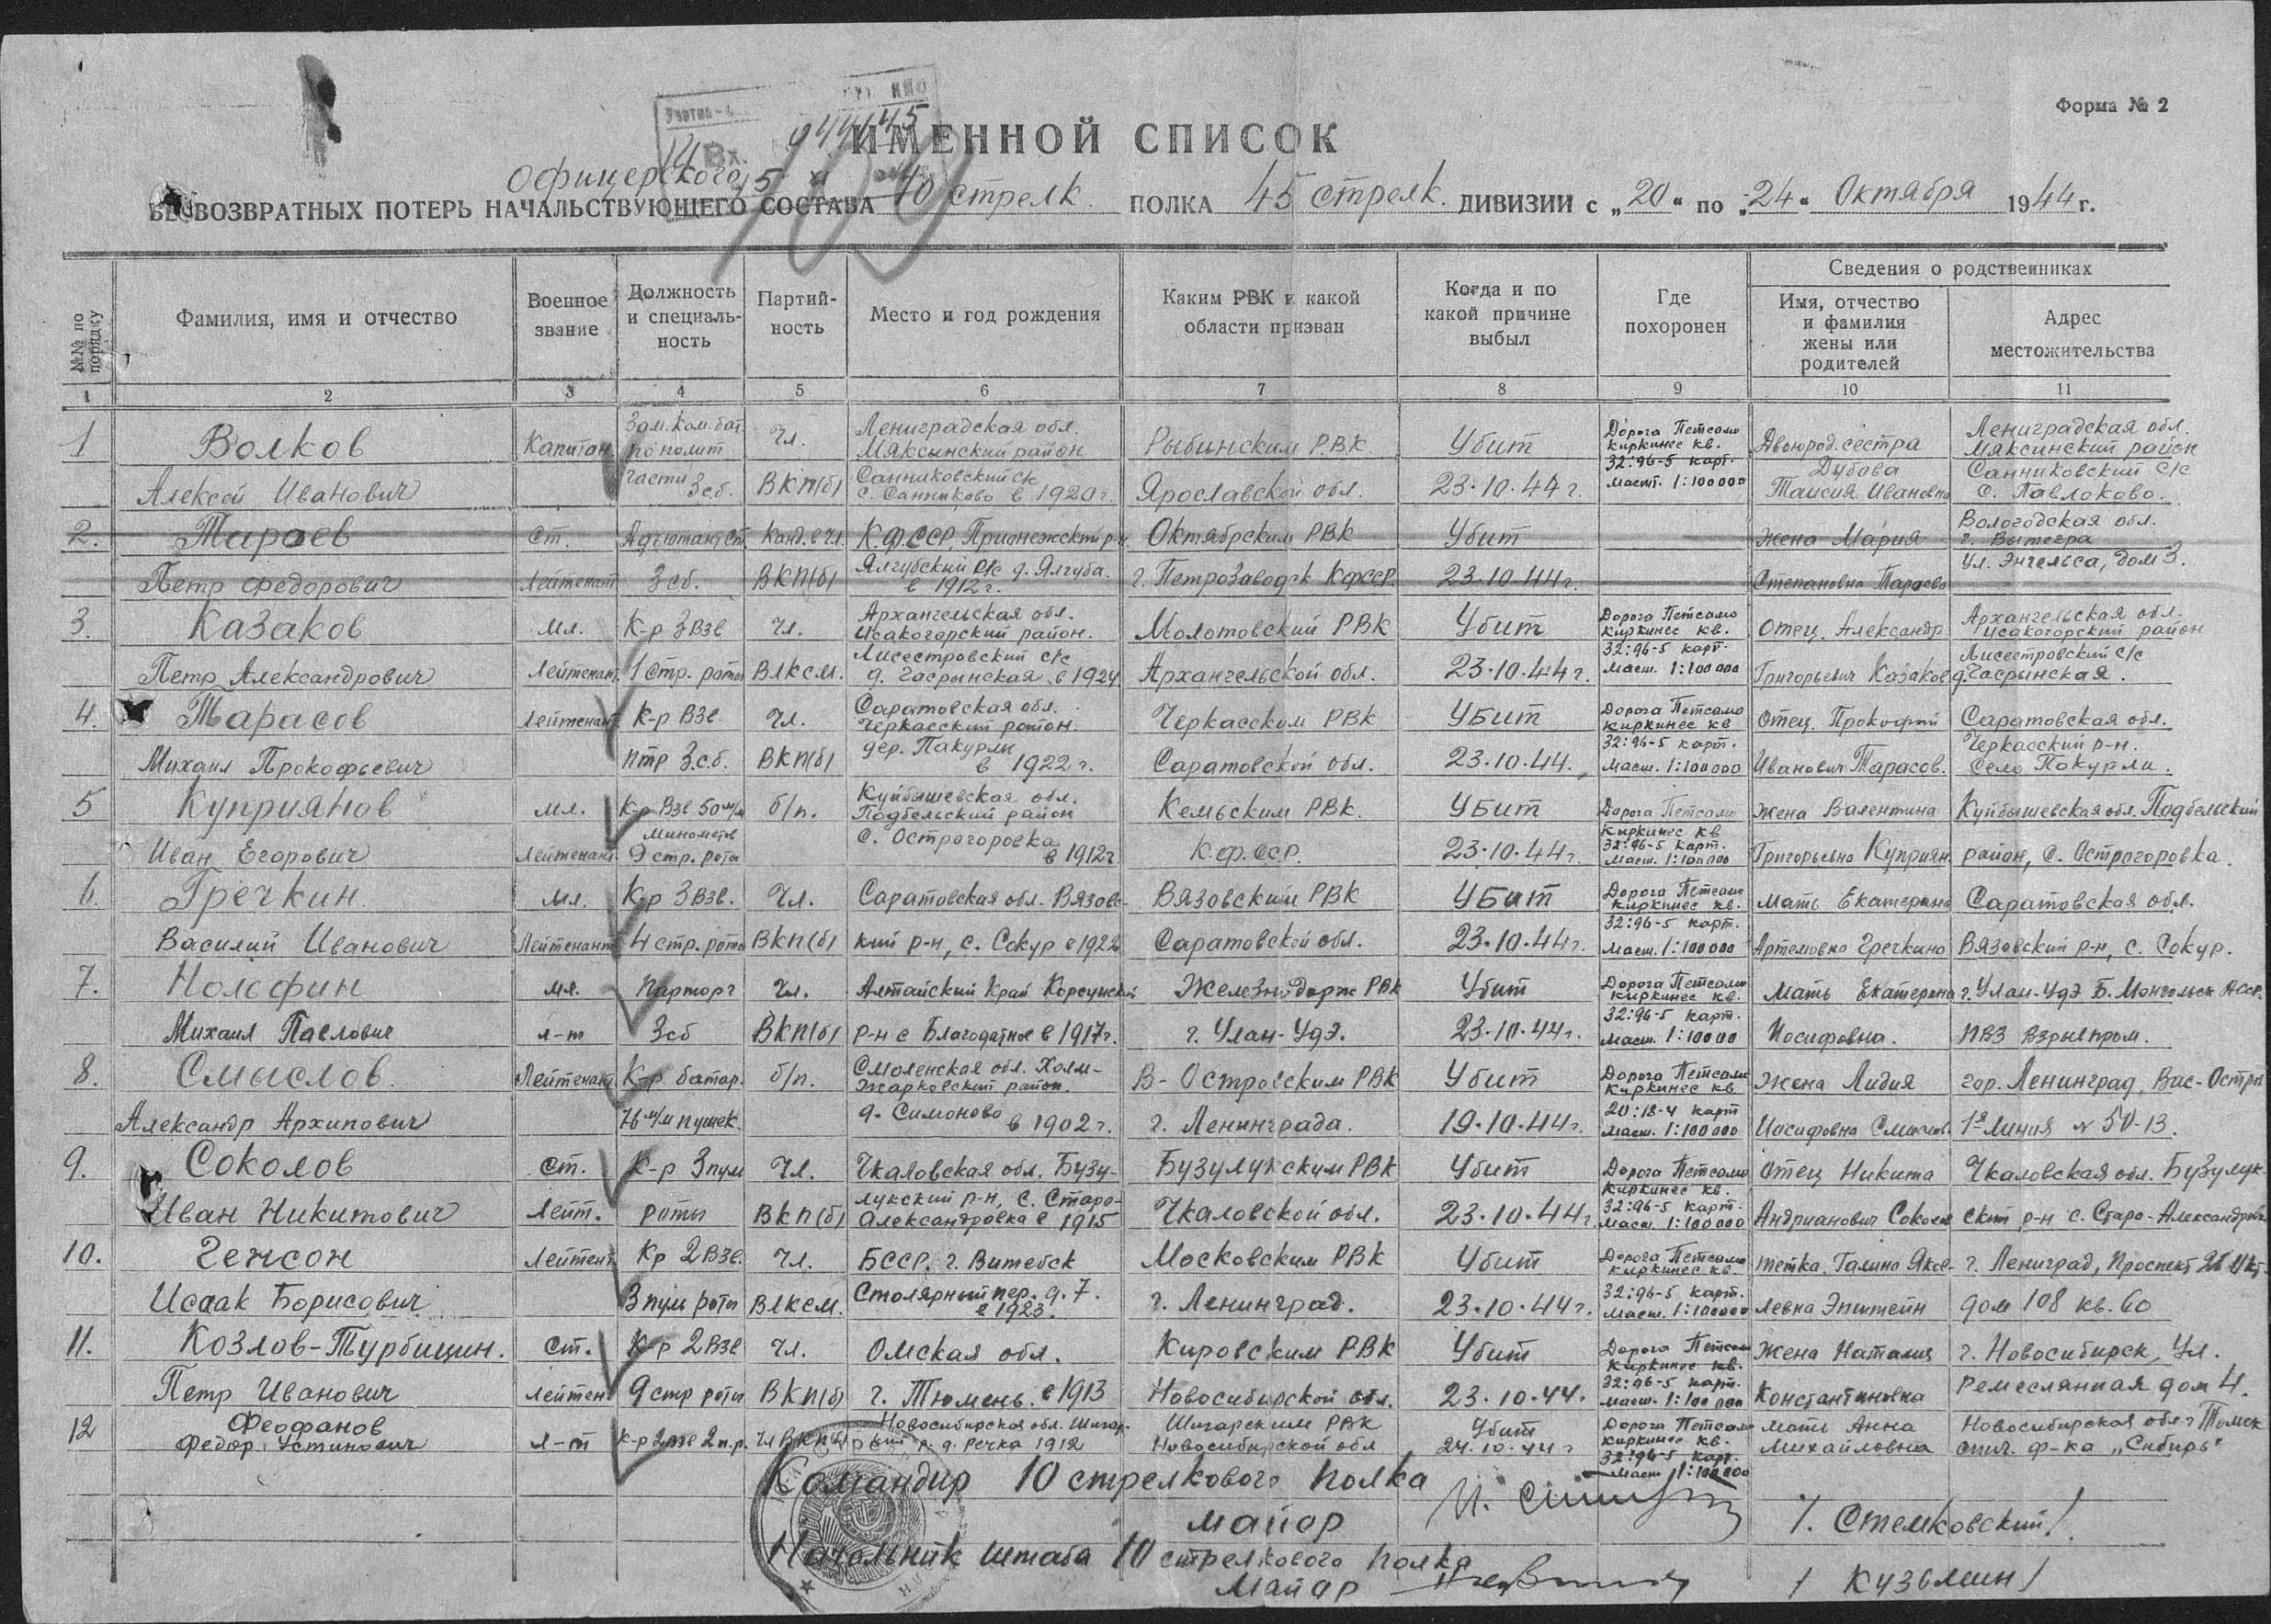 Форма № 2
ИМЕННОЙ СПИСОК
Вх. 044145
109
офицерского
БЕЗВОЗВРАТНЫХ ПОТЕРЬ НАЧАЛЬСТВУЮЩЕГО СОСТАВА 10 стрелк. ПОЛКА 45 стрелк. ДИВИЗИИ с „20" по „24" Октября 1944 г.
№№ по порядку
Фамилия, имя и отчество
Военное звание
Должность и специальность
Партийность
Место и год рождения
Каким РВК и какой области призван
Когда и по какой причине выбыл
Где похоронен
Сведения о родственниках
Имя, отчество и фамилия жены или родителей
Адрес местожительства
1 2 3 4 5 6 7 8 9 10 11
1 Волков Алексей Иванович Капитан Зам. Ком. бат. по полит части 3 сб. Чл. ВКП(б) Лениградская обл. Мяксынский район Санниковский с/с с. Санниково в 1920 г. Рыбинским Р.В.К. Ярославской обл. Убит 23.10.44 г. Дорога Петсамо Киркинес кв. 32:96-5 карт. Масшт. 1:100000 Двоюрод. сестра Дубова Таисия Ивановна Лениградская обл. Мяксинский район Санниковский с/с с. Павлоково.
2. Тароев Петр Федорович Ст. Лейтенант Адъютант Ст. 3 сб. Канд. в чл. ВКП(б) К.Ф.ССР, Прионежский р-н. Ялгубский с/с д. Ялгуба. в 1912 г. Октябрским РВК г. Петрозаводск КФССР Убит 23.10.44 г. Жена Мария Степановна Тароева Вологодская обл. г. Вытегра ул. Энгельса, дом 3.
3. Казаков Петр Александрович Мл. Лейтенант К-р 3 взв 1 стр. роты Чл. ВЛКСМ. Архангельская обл. Исакогорский район. Лисестровский с/с д. Часрынская в 1924 Молотовский РВК Архангельской обл. Убит 23.10.44 г. Дорога Петсамо Киркинес кв. 32:96-5 карт. Масш. 1:100000 Отец. Александр Григорьевич Казаков Архангельская обл. Исакогорский район Лисестровский с/с д. Часрынская.
4. Тарасов Михаил Прокофьевич Лейтенант К-р Взв ПТР 3 с.б. Чл. ВКП(б) Саратовская обл. Черкасский район. дер. Пакурли в 1922 г. Черкасским РВК Саратовской обл. Убит 23.10.44. Дорога Петсамо Киркинес кв 32:96-5 карт. Масш. 1:100000 Отец. Прокофий Иванович Тарасов. Саратовская обл. Черкасский р-н. Село Покурли.
5 Куприянов Иван Егорович мл. Лейтенант К-р Взв 50 м/м минометов 9 стр. роты б/п. Куйбышевская обл. Подбельский район с. Острогоровка в 1912 г Кемьским РВК. К.Ф.ССР. Убит 23.10.44 г. Дорога Петсамо Киркинес кв 32:96-5 карт. Масш. 1:100000 Жена Валентина Григорьевна Куприян. Куйбышевская обл. Подбельский район, с. Острогоровка.
6. Гречкин Василий Иванович мл. Лейтенант К-р 3 взв. 4 стр. роты Чл. ВКП(б) Саратовская обл. Вязовский р-н, с. Сокур в 1922 Вязовским РВК Саратовской обл. Убит 23.10.44 г. Дорога Петсамо Киркинес кв. 32:96-5 карт. Масш. 1:100000 Мать Екатерина Артемовна Гречкина Саратовская обл. Вязовский р-н, с. Сокур.
7. Нольфин Михаил Павлович мл. л-т Парторг 3 сб Чл. ВКП(б) Алтайский Край р-н с Благодатное в 1917 г. Железнодорж РВК г. Улан-Удэ. Убит 23.10.44 г. Дорога Петсамо Киркинес кв. 32:96-5 карт. Масш. 1:10000 Мать Екатерина Иосифовна. г. Улан-Удэ Б. Монгольск АССР. ПВЗ Взрывпром.
8. Смыслов Александр Архипович Лейтенант К-р батар. 76 м/м пушек. б/п. Смоленская обл. Холм-Жарковский район. д. Симоново в 1902 г. В-Островским РВК г. Ленинграда. Убит 19.10.44 г. Дорога Петсамо Киркинес кв. 20:18-4 карт Масш. 1:100000 Жена Лидия Иосифовна Смыслова гор. Ленинград, Вас-Остров 1я Линия № 50-13.
9. Соколов Иван Никитович Ст. Лейт. К-р 3 пул роты Чл. ВКП(б) Чкаловская обл. Бузулукский р-н, с. Старо-Александровка в 1915 Бузулукским РВК Чкаловской обл. Убит 23.10.44 г. Дорога Петсамо Киркинес кв. 32:96-5 карт. Масш. 1:100000 Отец Никита Андрианович Соколов Чкаловская обл. Бузулукский р-н с. Старо-Александровка
10. Генсон Исаак Борисович Лейтент К-р 2 взв. 3 пул роты Чл. ВЛКСМ. БССР. г. Витебск Столярный пер. д. 7. в 1923. Московским РВК г. Ленинград. Убит 23.10.44 г. Дорога Петсамо Киркинес кв. 32:96-5 карт. Масш. 1:100000 тетка. Галина Яковлевна Эпштейн г. Лениград, Проспект 25 Окт. дом 108 кв. 60
11. Козлов-Турбицин. Петр Иванович Ст. лейтен К-р 2 взв 9 стр роты Чл. ВКП(б) Омская обл. г. Тюмень. в 1913 Кировским РВК Новосибирской обл. Убит 23.10.44. Дорога Петсамо Киркинес кв. 32:96-5 карт. Масш. 1:100000 Жена Наталия Константиновна г. Новосибирск, ул. Ремеслянная дом 4.
12 Феофанов Федор Устинович л-т К-р 2 взв 2 п.р. Чл ВКП(б) Новосибирская обл. д. Речка 1912 Шигарским РВК Новосибирской обл Убит 24.10.44 г Дорога Петсамо Киркинес кв. 32:96-5 карт. Масш 1:100000 мать Анна Михайловна Новосибирская обл г Томск спич. ф-ка „Сибирь"
Командир 10 стрелкового полка
майор / Стемковский /
Начальник штаба 10 стрелкового полка
Майор / Кузьмин /